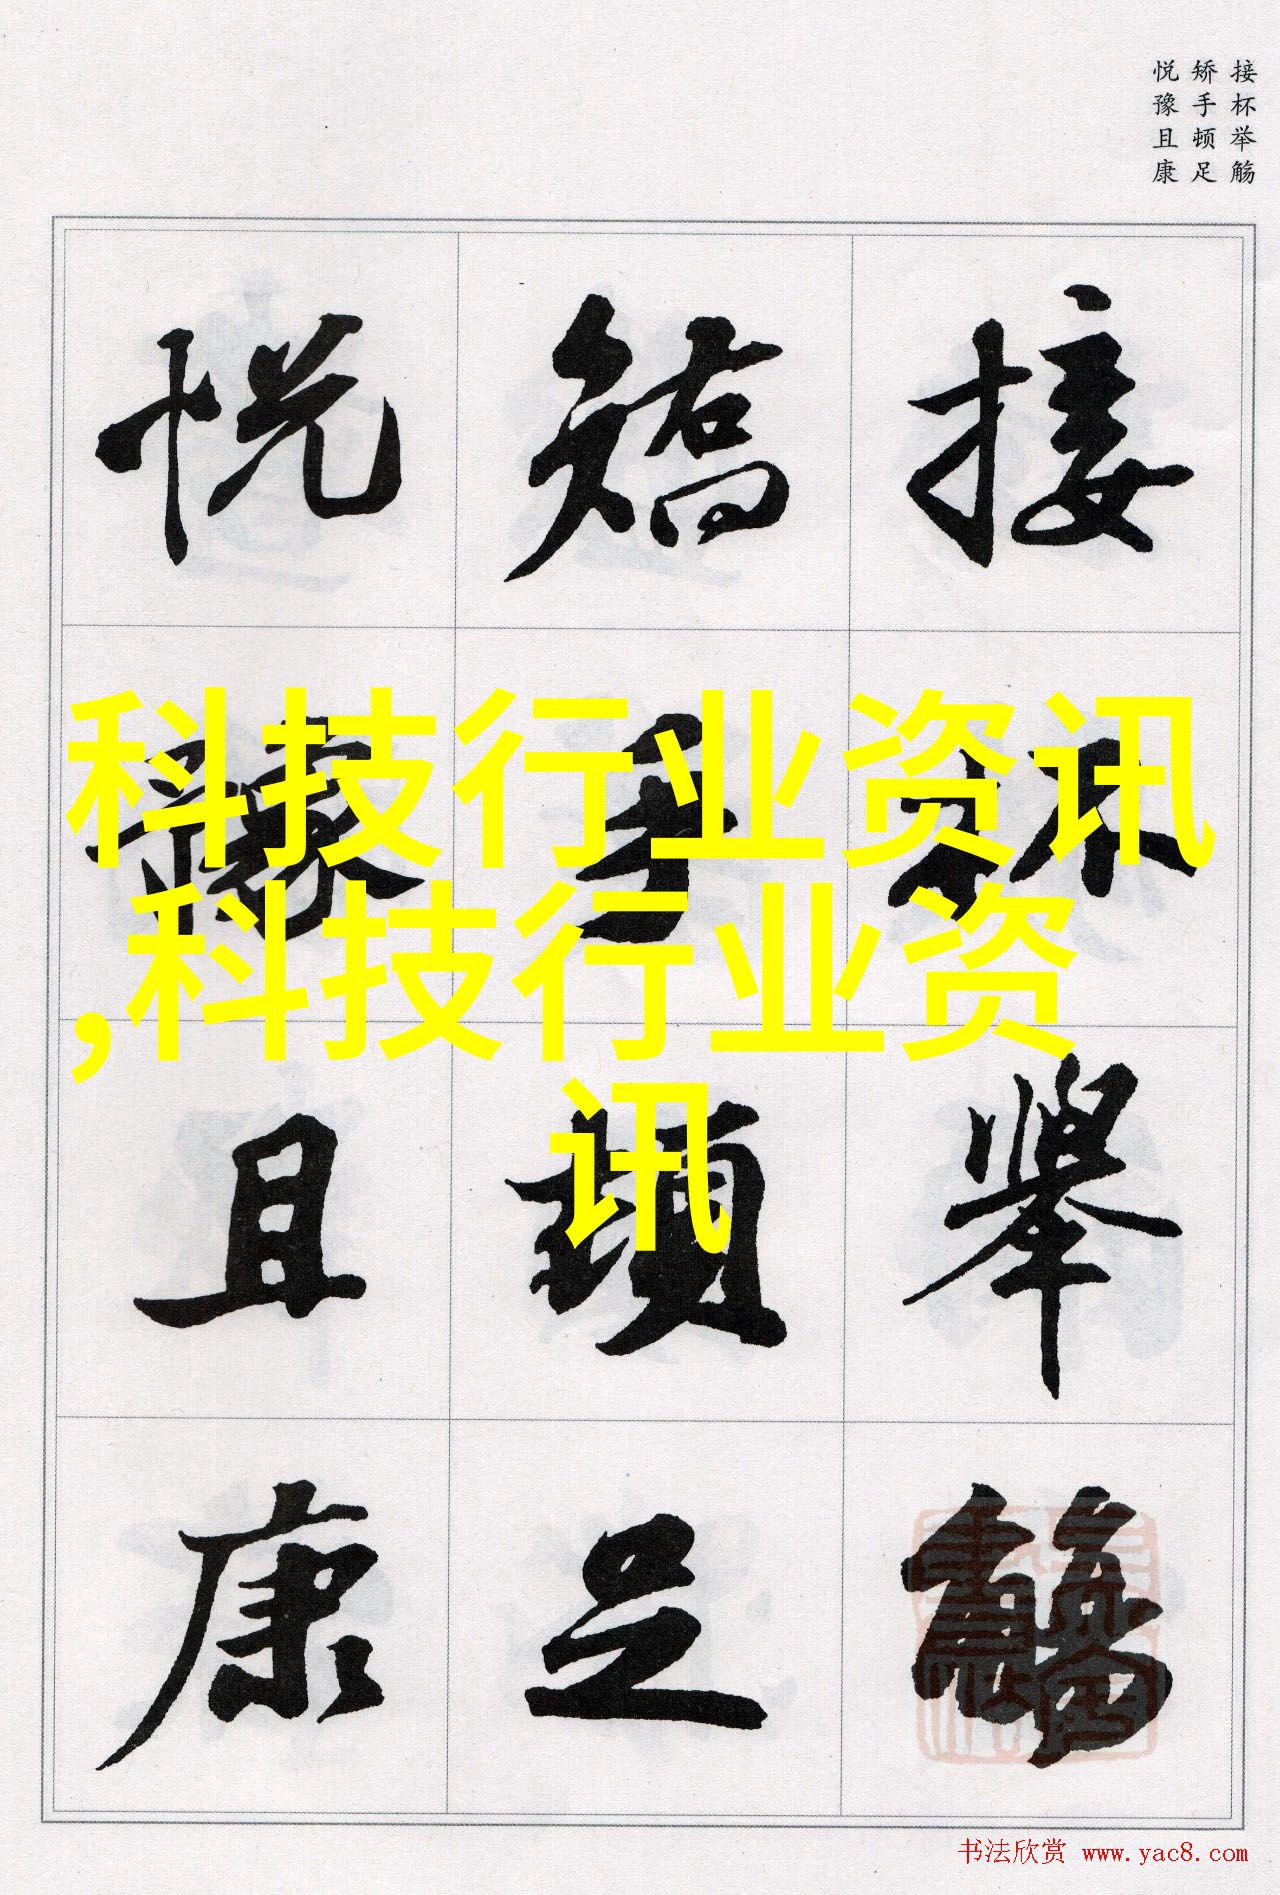 接杯举觞
矫手顿足
悦豫且康
接杯舉觴
矯手頓足
悦豫且康
科技行业资讯
,科技行业资
讯
书法欣赏 www.yac8.com